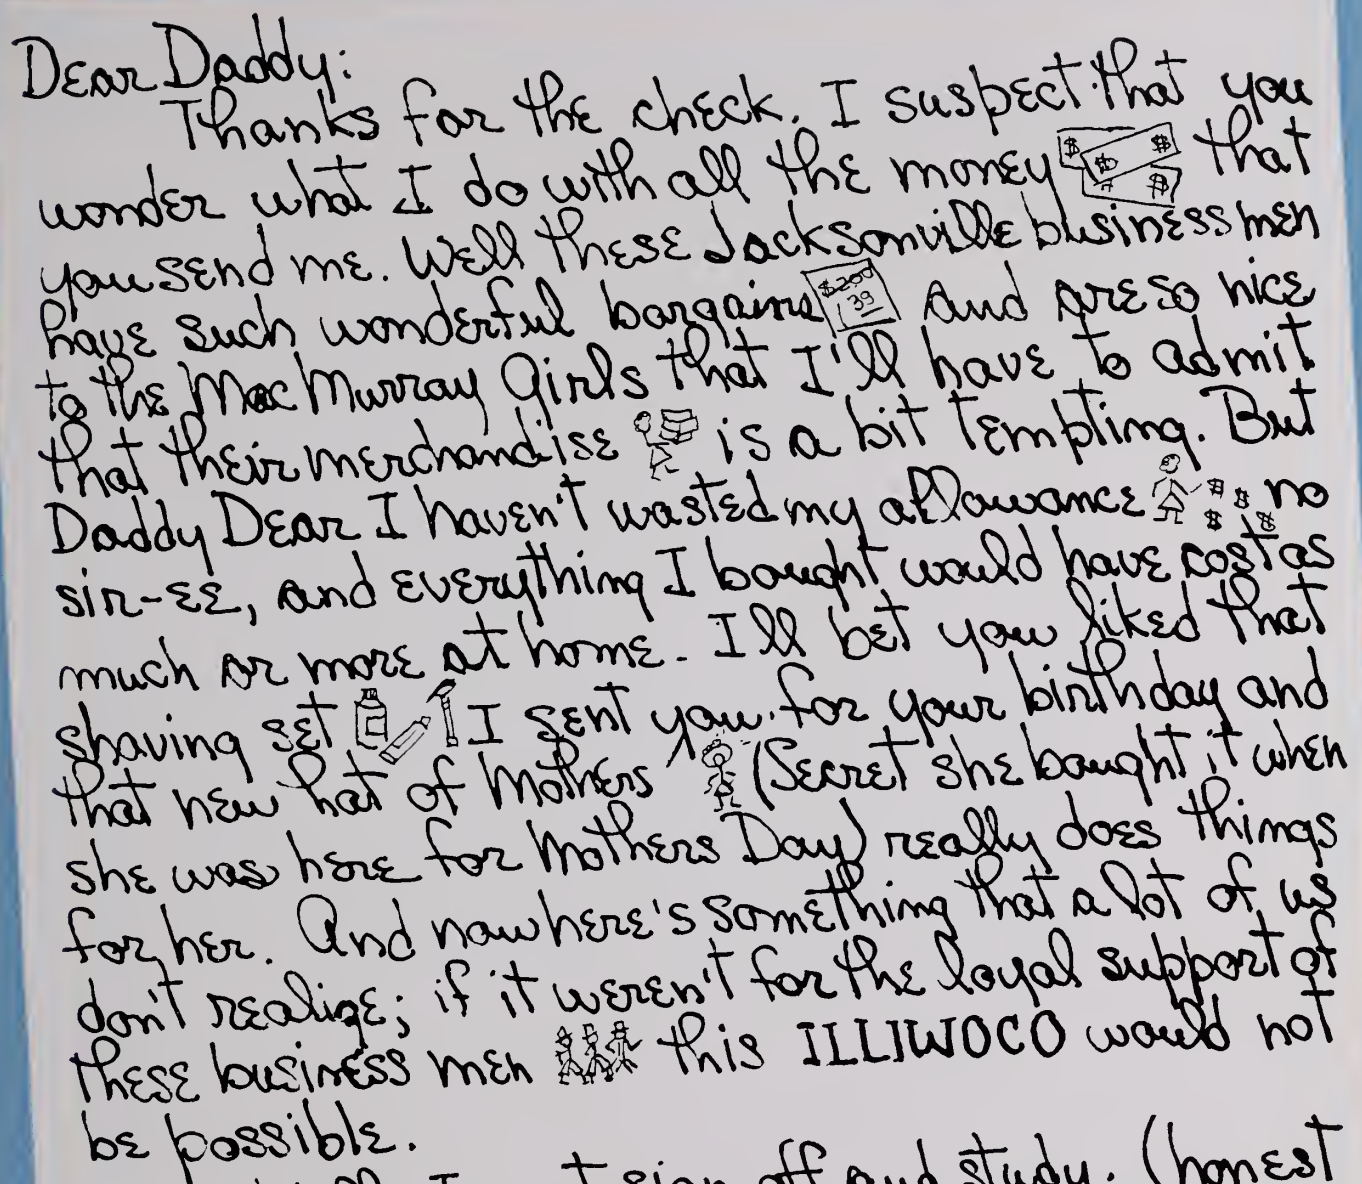 Dear Daddy:
Thanks for the check. I suspect that you
wonder what I do with all the money $ $ $ $ that
you send me. Well these Jacksonville business men
have such wonderful bargains $2.00 .39 and are so nice
to the MacMurray Girls that I'll have to admit
that their merchandise is a bit tempting. But
Daddy Dear I haven't wasted my allowance $ $ $ $ no
sir-ee, and everything I bought would have cost as
much or more at home. I'll bet you liked that
shaving set I sent you for your birthday and
that new hat of Mothers (Secret she bought it when
she was here for Mothers Day) really does things
for her. And now here's something that a lot of us
don't realize; if it weren't for the loyal support of
these business men this ILLIWOCO would not
be possible.
sign off and study. (honest